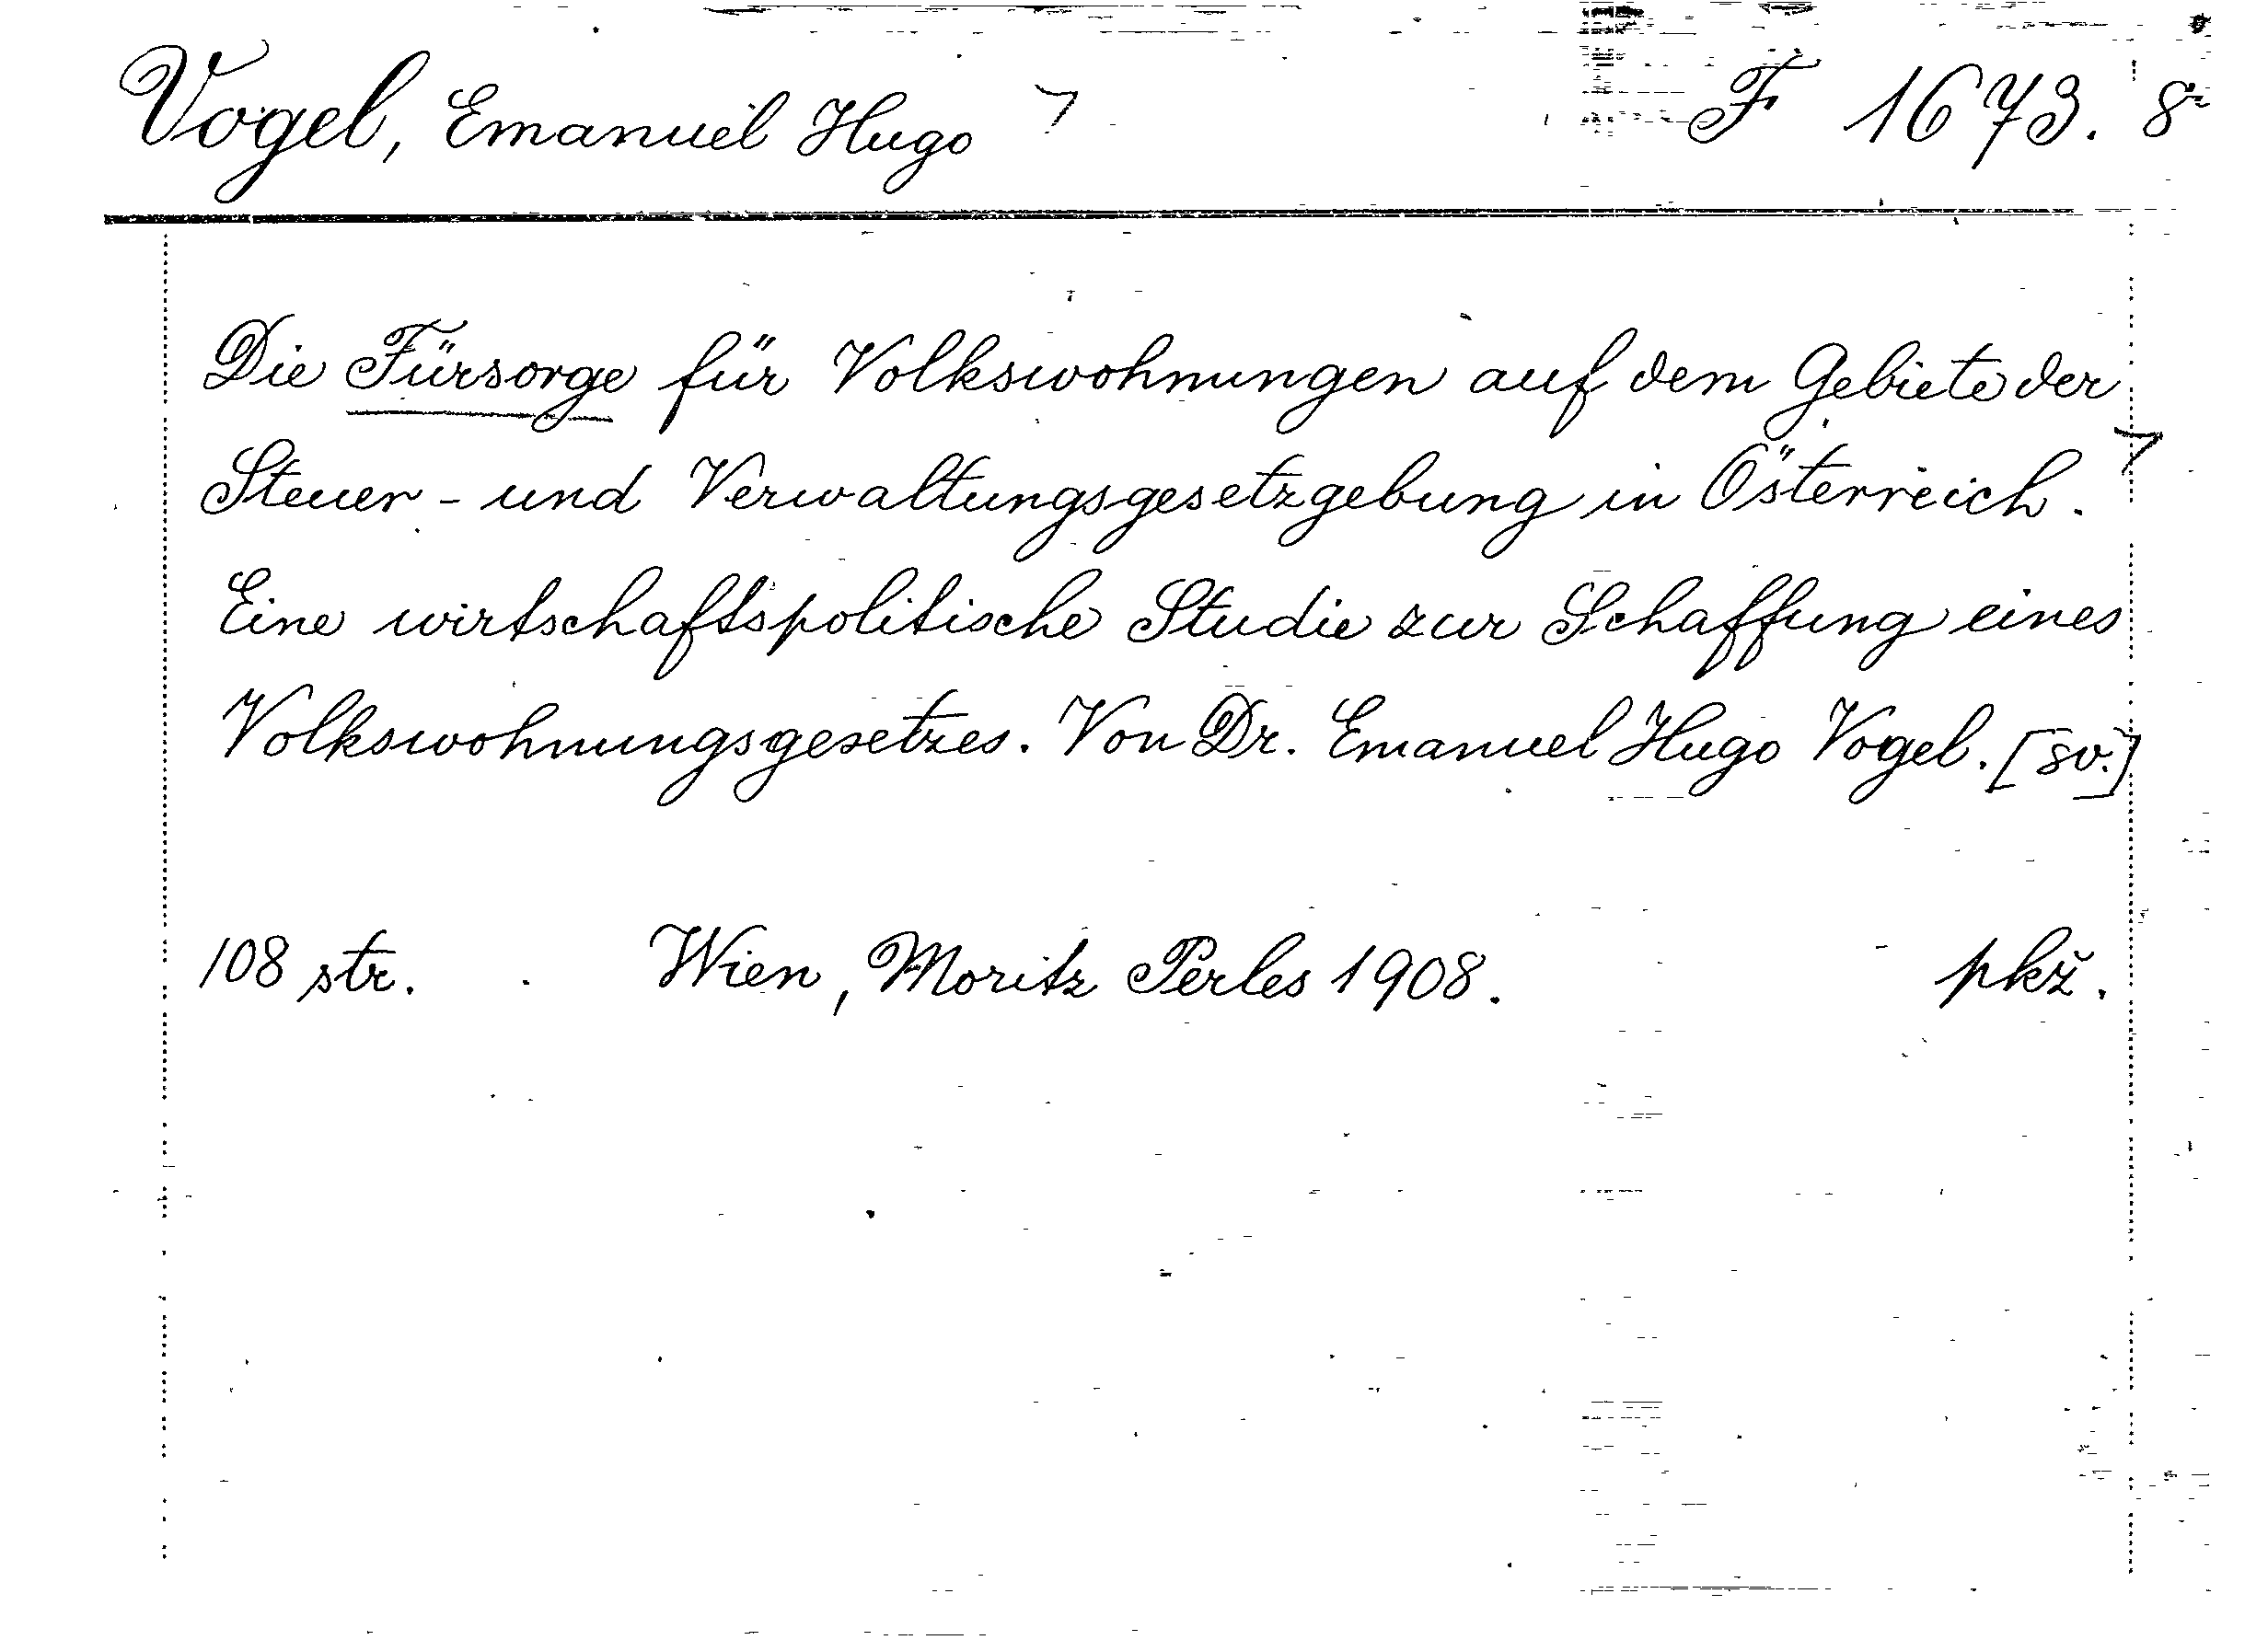 Vogel, Emanuel Hugo F 1673. 8°
Die Fürsorge für Volkswohnungen auf dem Gebiete der
Steuer- und Verwaltungsgesetzgebung in Österreich.
Eine wirtschaftspolitische Studie zur Schaffung eines
Volkswohnungsgesetzes. Von Dr. Emanuel Hugo Vogel. [sv.]
108 str. Wien, Moritz Perles 1908. pkž.